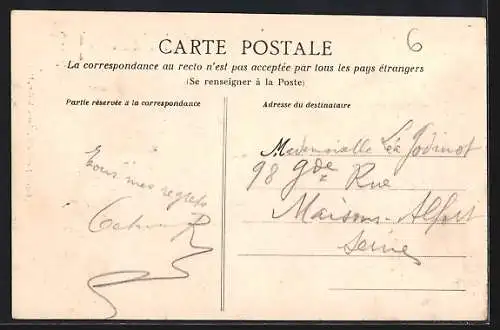 6
CARTE POSTALE
La correspondance au recto n'est pas acceptée par tous les pays étrangers
(Se renseigner à la Poste)
Partie réservée à la correspondance
Adresse du destinataire
Tous mes regrets
Mademoiselle Léa Godinot
98 gde Rue
Maisons-Alfort
Seine